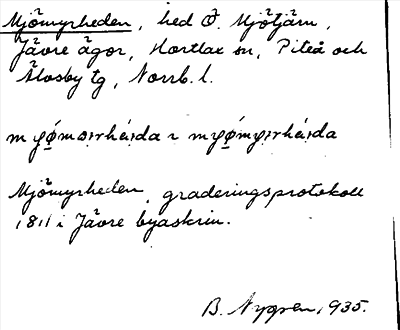 Mjömyrheden, hed Ö. Mjötjärn,
Jävre ägor, Hortlax sn, Piteå och
Älvsby tg, Norrb. l.
Mjömyrheden, graderingsprotokoll
1811 i Jävre byaskrin.
B. Nygren, 1935.